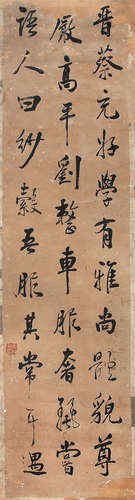 晋蔡充好學有雅尚體貌尊
嚴高平劉整車服奢麗嘗
語人曰紗縠吾服其常耳遇